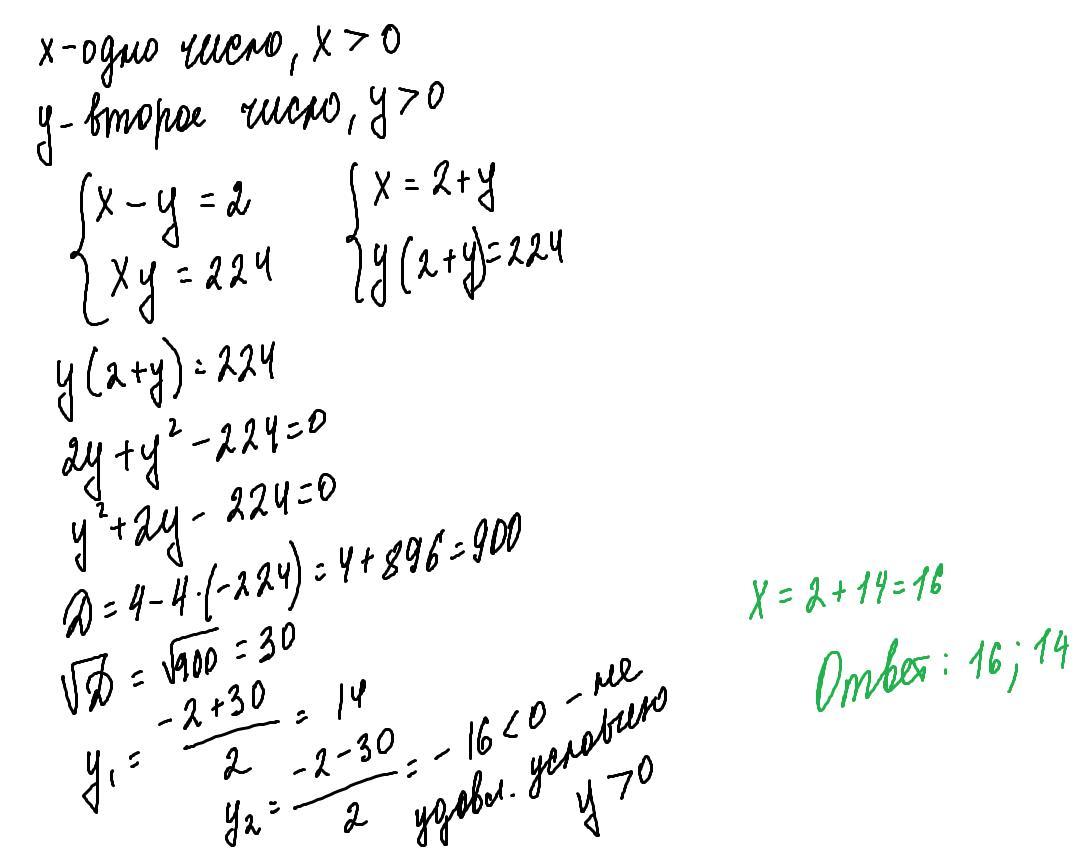 x - одно число, x > 0
y - второе число, y > 0
{ x - y = 2
xy = 224
{ x = 2 + y
y(2+y) = 224
y(2+y) = 224
2y + y² - 224 = 0
y² + 2y - 224 = 0
D = 4 - 4·(-224) = 4 + 896 = 900
√D = √900 = 30
y₁ = (-2+30)/2 = 14
y₂ = (-2-30)/2 = -16 < 0 - не
удовл. условию
y > 0
x = 2 + 14 = 16
Ответ: 16; 14